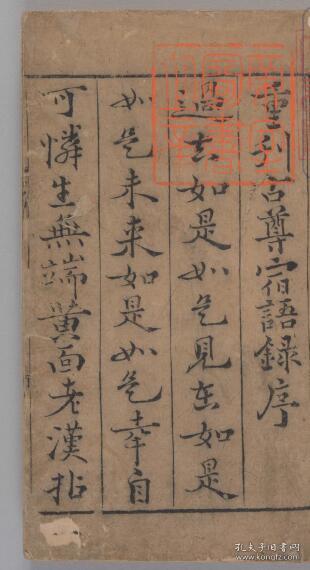 重刊古尊宿語録序
過去如是如是見在如是
如是未来如是如是幸自
可憐生無端黄面老漢拈
孔夫子旧书网
www.kongfz.com